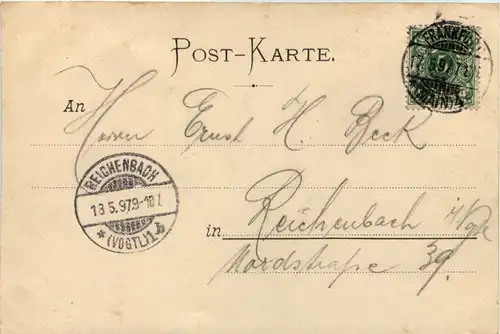 POST-KARTE.
FRANKFURT
(MAIN)
An
Herrn Ernst H. Beck
REICHENBACH
13.5.97.9-10V.
*(VOGTL)1b
in Reichenbach i/Vgtl
Nordstraße 39.